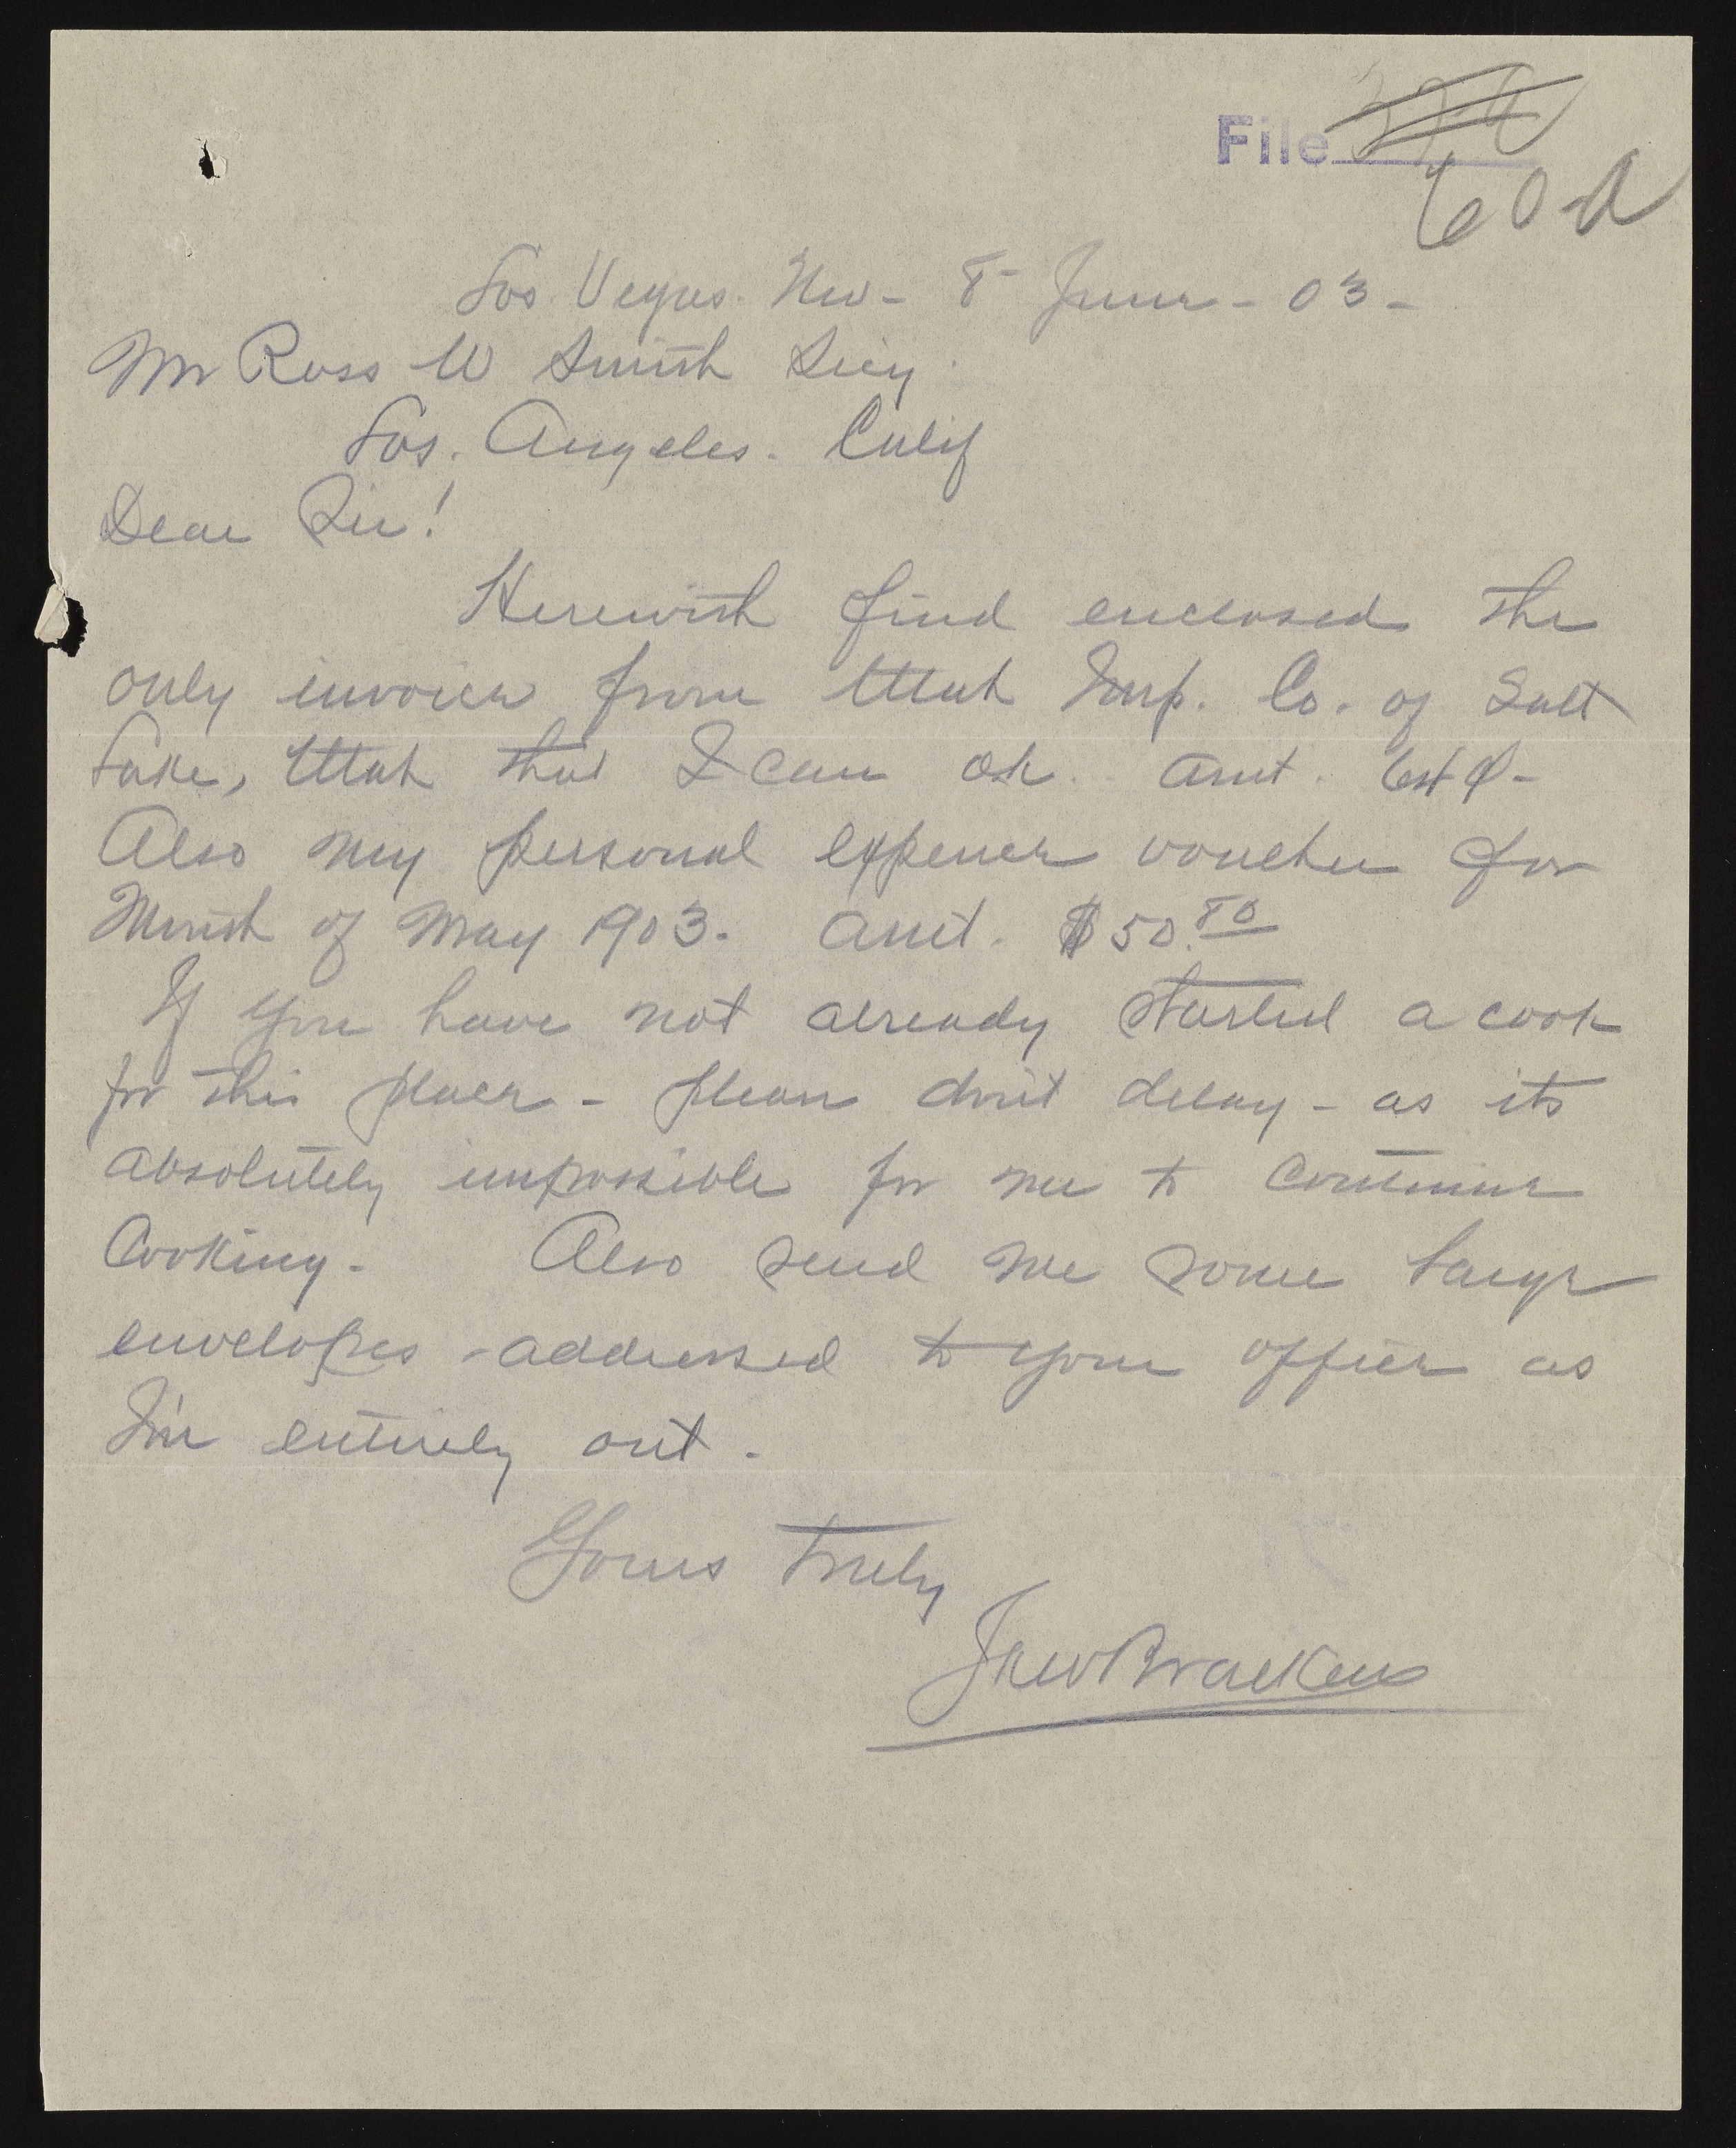 File
60 a
Los. Vegas. Nev - 8 - June - 03 -
Mr Ross W Smith Secy.
Los. Angeles. Calif
Dear Sir!
Herewith find enclosed the
only invoice from Utah Imp. Co. of Salt
Lake, Utah that I can ok. amt.
Also my personal expence voucher for
Month of May 1903. amt. $50.80
If you have not already started a cook
for this place - please don't delay - as its
absolutely impossible for me to continue
Cooking - Also send me some large
envelopes - addressed to your office as
I'm entirely out.
Yours truly
Walter Bracken